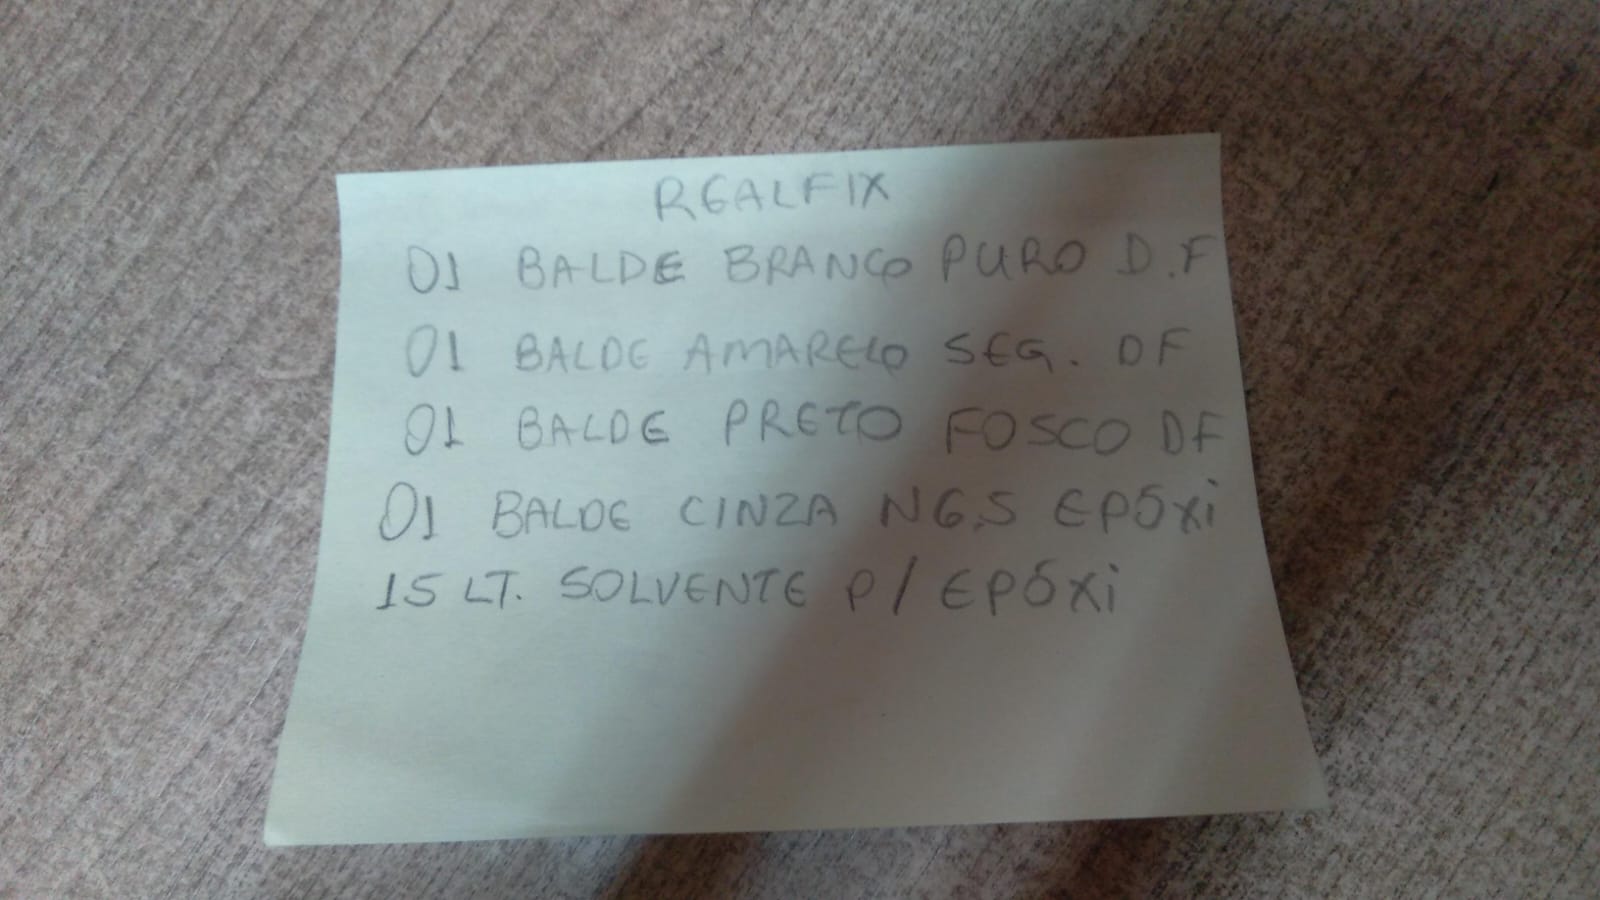 REALFIX
01 BALDE BRANCO PURO D.F
01 BALDE AMARELO SEG. DF
01 BALDE PRETO FOSCO DF
01 BALDE CINZA N6.5 EPÓXi
15 LT. SOLVENTE P/ EPÓXi